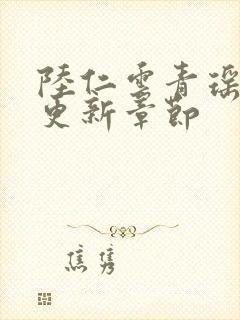 陸仁雲青瑶
更新章節
焦隽